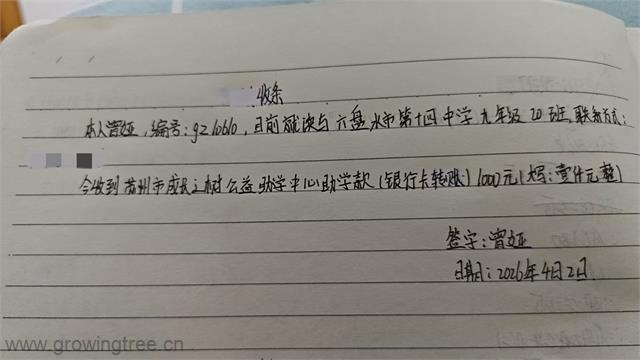 收条
本人曾娅，编号：gz10610，目前就读与六盘水市第十四中学九年级20班，联系方式：
今收到苏州市成长之树公益助学中心助学款（银行卡转账）1000元（大写：壹仟元整）
签字：曾娅
日期：2026年4月2日
www.growingtree.cn